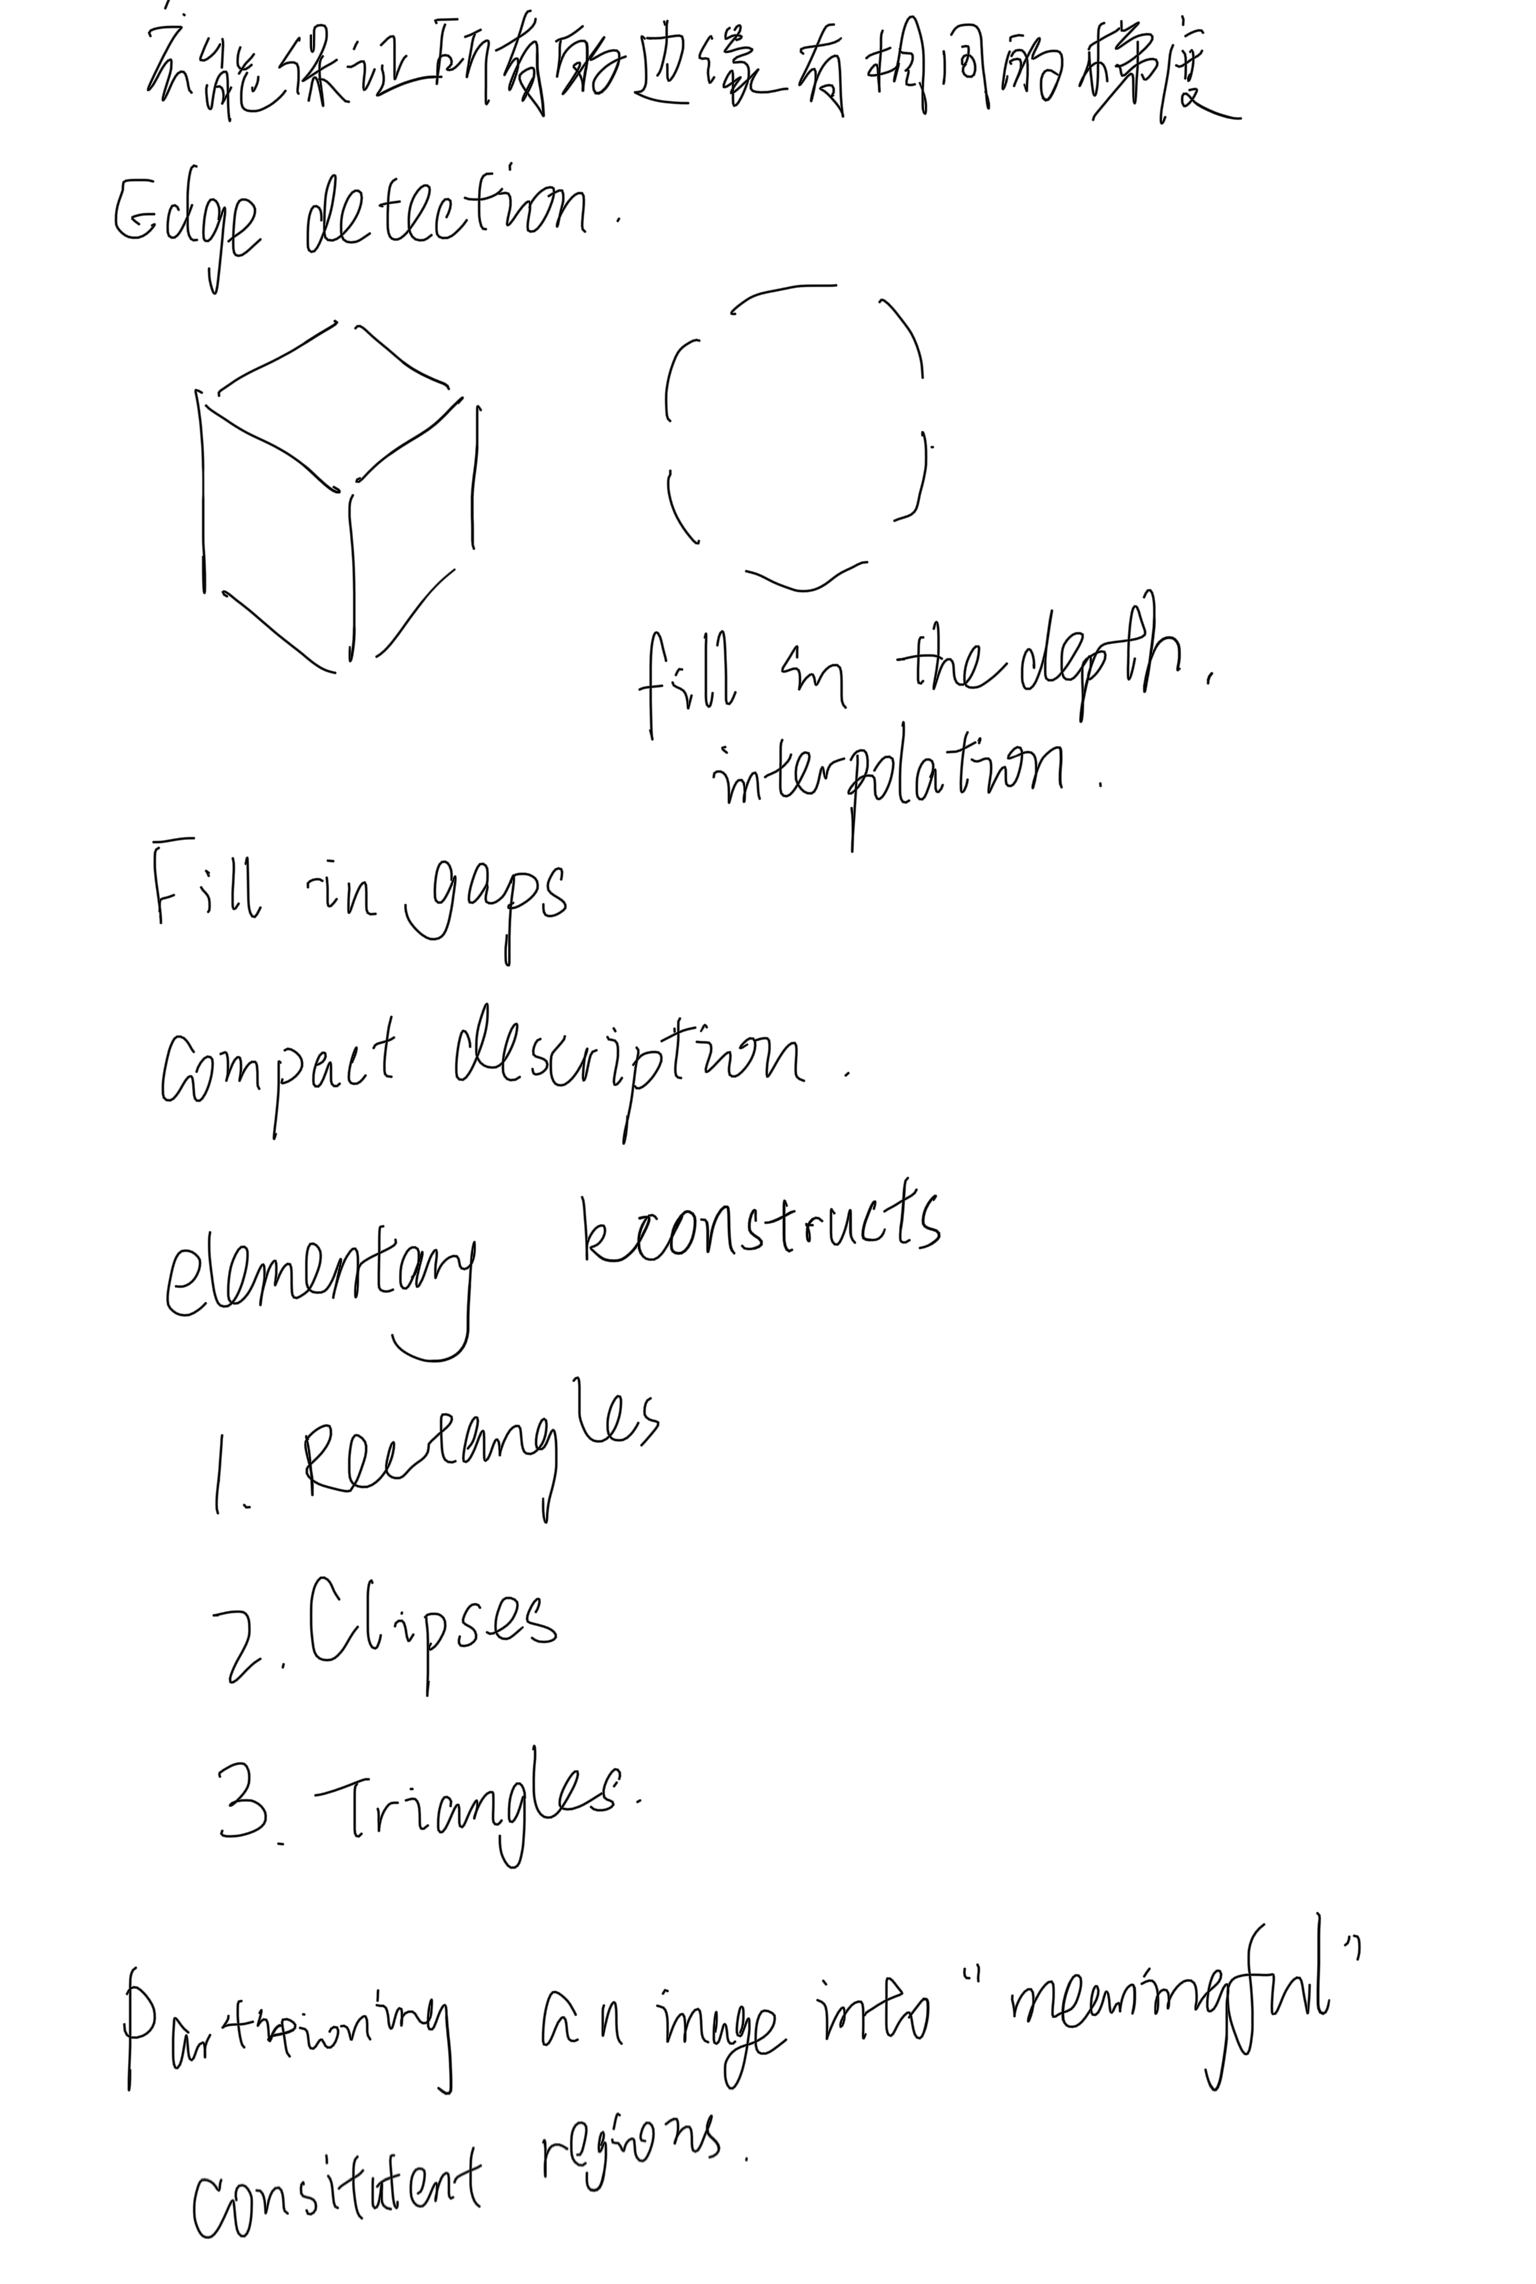 不能保证所有的边缘有相同的梯度
Edge detection.
fill in the depth.
interpolation.
Fill in gaps
compact description.
elementary constructs
1. Rectangles
2. Clipses
3. Triangles.
Partitioning an image into "meaningful"
consitutent regions.